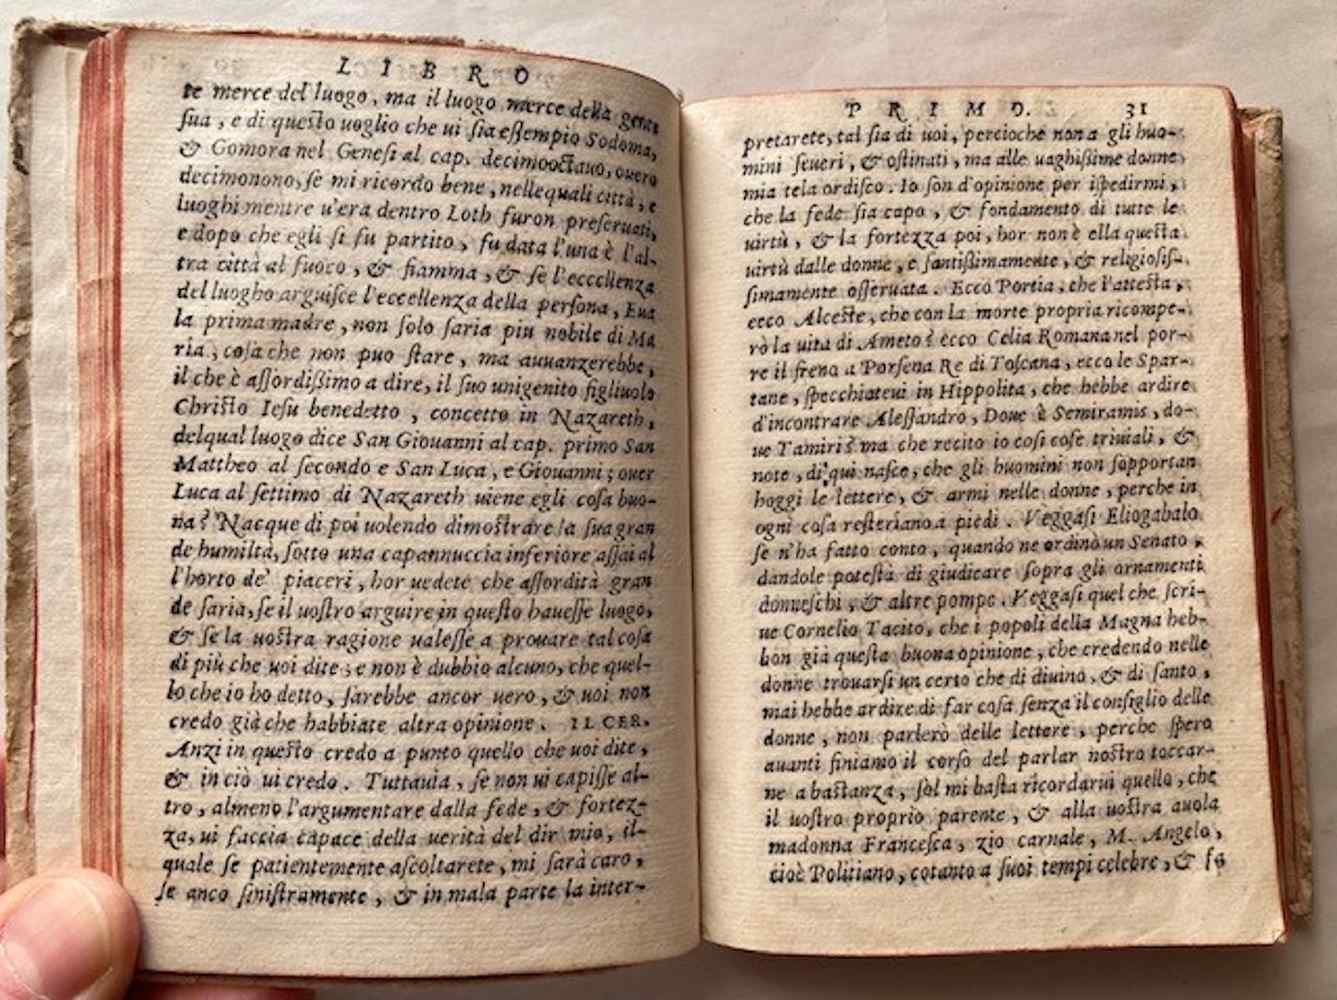 LIBRO
te merce del luogo, ma il luogo merce della gente
sua, e di questo uoglio che ui sia essempio Sodoma,
& Gomora nel Genesi al cap. decimoottauo, ouero
decimonono, se mi ricordo bene, nelle quali città, e
luoghi mentre u'era dentro Loth furon preseruati,
e dopo che egli si fu partito, fu data l'una è l'al-
tra città al fuoco, & fiamma, & se l'eccellenza
del luogho arguisce l'eccellenza della persona, Eua
la prima madre, non solo saria piu nobile di Ma
ria, cosa che non puo stare, ma auuanzerebbe,
il che è assordißimo a dire, il suo unigenito figliuolo
Christo Iesu benedetto, concetto in Nazareth,
delqual luogo dice San Giouanni al cap. primo San
Mattheo al secondo e San Luca, e Giouanni; ouer
Luca al settimo di Nazareth uiene egli cosa buo-
na? Nacque di poi uolendo dimostrare la sua gran
de humiltà, sotto una capannuccia inferiore assai al
l'horto de' piaceri, hor uedete che assordità gran
de saria, se il uostro arguire in questo hauesse luogo,
& se la uostra ragione ualesse a prouare tal cosa
di più che uoi dite; e non è dubbio alcuno, che quel-
lo che io ho detto, sarebbe ancor uero, & uoi non
credo già che habbiate altra opinione. IL CER.
Anzi in questo credo a punto quello che uoi dite,
& in ciò ui credo. Tuttauia, se non ui capisse al-
tro, almeno l'argumentare dalla fede, & fortez-
za, ui faccia capace della uerità del dir mio, il-
quale se patientemente ascoltarete, mi sarà caro,
se anco sinistramente, & in mala parte la inter-
PRIMO. 31
pretarete, tal sia di uoi, percioche non a gli huo-
mini seueri, & ostinati, ma alle uaghißime donne
mia tela ordisco. Io son d'opinione per ispedirmi,
che la fede sia capo, & fondamento di tutte le
uirtù, & la fortezza poi, hor non è ella questa
uirtù dalle donne, e santißimamente, & religiosis-
simamente osseruata. Ecco Portia, che l'attesta,
ecco Alceste, che con la morte propria ricompe-
rò la uita di Ameto? ecco Celia Romana nel por-
re il freno a Porsena Re di Toscana, ecco le Spar-
tane, specchiateui in Hippolita, che hebbe ardire
d'incontrare Alessandro, Doue è Semiramis, do-
ue Tamiri? ma che recito io cosi cose triuiali, &
note, di qui nasce, che gli huomini non sopportan
hoggi le lettere, & armi nelle donne, perche in
ogni cosa resteriano a piedi. Veggasi Eliogabalo
se n'ha fatto conto, quando ne ordinò un Senato,
dandole potestà di giudicare sopra gli ornamenti
donneschi, & altre pompe. Veggasi quel che scri-
ue Cornelio Tacito, che i popoli della Magna heb-
bon già questa buona opinione, che credendo nelle
donne trouarsi un certo che di diuino, & di santo,
mai hebbe ardire di far cosa senza il consiglio delle
donne, non parlerò delle lettere, perche spero
auanti finiamo il corso del parlar nostro toccar-
ne a bastanza, sol mi basta ricordarui quello, che
il uostro proprio parente, & alla uostra auola
madonna Francesca, zio carnale, M. Angelo,
cioè Politiano, cotanto a suoi tempi celebre, & fa